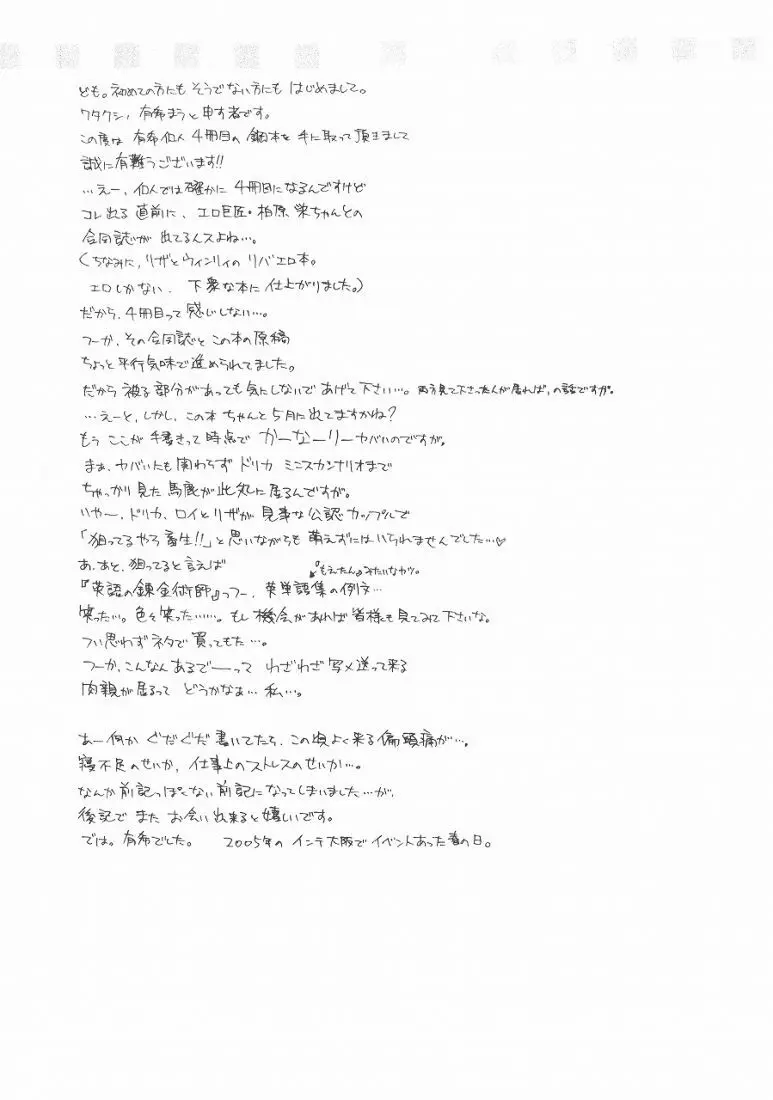 ども。初めての方にも そうでない方にも はじめまして。
ワタクシ、有希まうと申す者です。
この度は 有希個人 4冊目の 鋼本を 手に取って頂きまして
誠に有難うございます!!
…えー、個人では確かに 4冊目になるんですけど
コレ出る 直前に、エロ巨匠・柏原 栄ちゃんとの
合同誌が 出てるんスよね…。
(ちなみに、リザとウィンリィの リバエロ本。
エロしかない、下衆な本に仕上がりました。)
だから、4冊目って 感じしない…。
つーか、その合同誌と この本の原稿
ちょっと平行気味で進められてました。
だから 被る部分があっても気にしないで あげて下さい…。両方見て下さった人が居れば、の話ですが。
…えーと、しかし、この本 ちゃんと5月に出てますかね?
もう ここが 手書きって時点で かーなーりーヤバいのですが。
まぁ、ヤバいにも関わらず ドリカ ミニスカシナリオまで
ちゃっかり見た 馬鹿が此処に居るんですが。
いやー、ドリカ、ロイとリザが 見事な公認カップルで
「狙ってるやろ畜生!!」と思いながらも 萌えずにはいられませんでした…♡
あ、あと、狙ってると言えば
『もえたん』みたいなヤツ。
『英語の錬金術師』っつー、英単語集の例文…
笑った…。色々笑った……。もし機会があれば皆様も見てみて下さいな。
つい思わずネタで 買ってもた…。
つーか、こんなんあるでーって わざわざ 写メ送って来る
肉親が居るって どうかなぁ…私…。
あー何か ぐだぐだ 書いてたら、この頃よく来る偏頭痛が…。
寝不足のせいか、仕事上のストレスのせいか…。
なんか前記っぽくない前記になってしまいました…が、
後記で また お会い出来ると嬉しいです。
では。有希でした。 2005年の インテ大阪で イベントあった春の日。